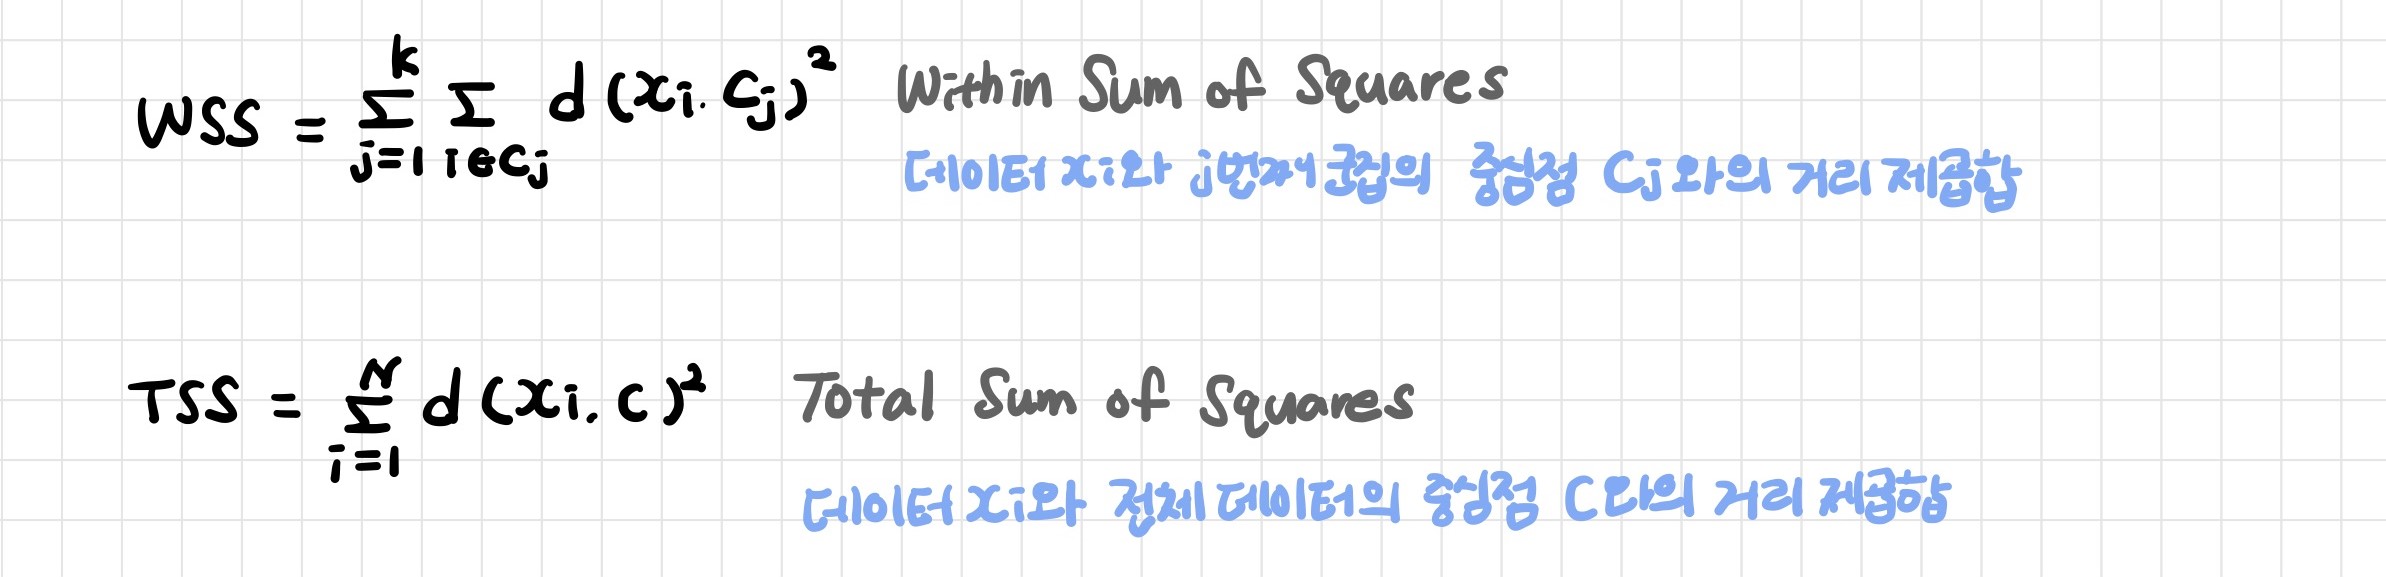 WSS = Σ_{j=1}^{k} Σ_{i∈Cj} d(xi. Cj)² Within Sum of Squares
데이터 xi와 j번째 군집의 중심점 Cj와의 거리 제곱합
TSS = Σ_{i=1}^{N} d(xi. c)² Total Sum of Squares
데이터 xi와 전체 데이터의 중심점 C와의 거리 제곱합